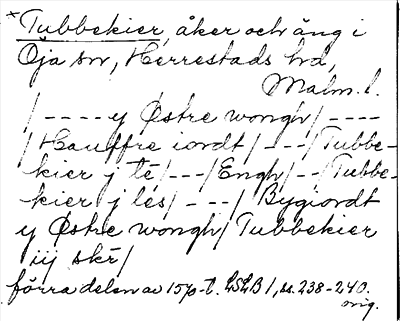 *Tubbekier, åker och äng i
Öja sn, Herrestads hd,
Malm. l.
/----y Østre wongh/----
/Hauffre iordt/---/Tubbe-
kier j tē/---/Engh/--/Tubbe-
kier j les/---/Bygiordt
y Østre wongh/Tubbekier
iij skē/
förra delen av 1570-t. LSLB 1, ss. 238-240.
orig.